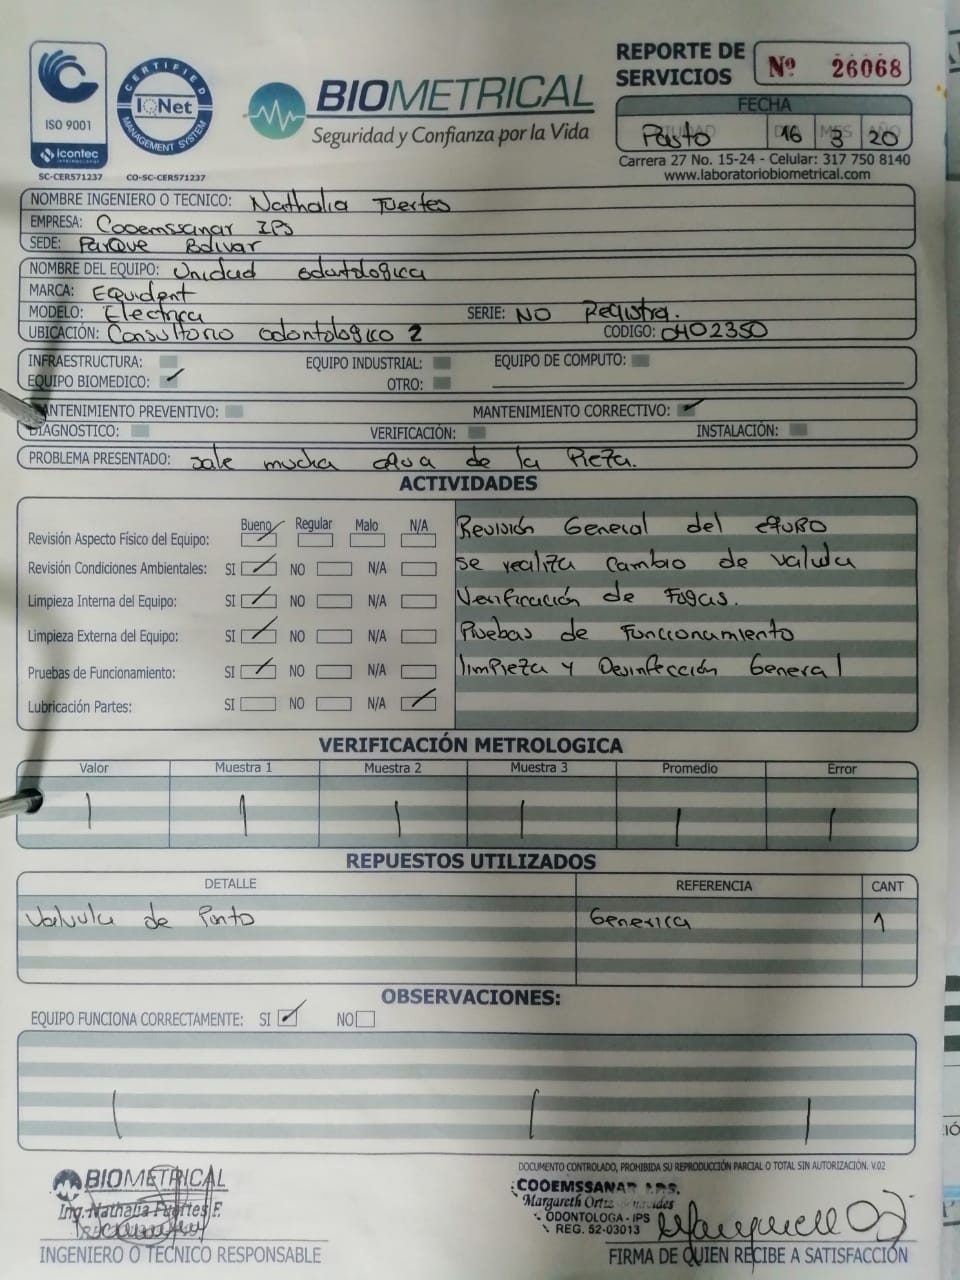 REPORTE DE SERVICIOS Nº 26068
ISO 9001
icontec
INTERNACIONAL
SC-CER571237
CERTIFIED
IQNet
MANAGEMENT SYSTEM
CO-SC-CER571237
BIOMETRICAL
Seguridad y Confianza por la Vida
FECHA
Pasto 16 3 20
Carrera 27 No. 15-24 - Celular: 317 750 8140
www.laboratoriobiometrical.com
NOMBRE INGENIERO O TECNICO: Nathalia Fuertes
EMPRESA: Cooemssanar IPS
SEDE: Parque Bolivar
NOMBRE DEL EQUIPO: Unidad odontologica
MARCA: Equident
MODELO: Electrica SERIE: NO Registra.
UBICACIÓN: Consultorio odontologico 2 CODIGO: 0402350
INFRAESTRUCTURA: EQUIPO INDUSTRIAL: EQUIPO DE COMPUTO:
EQUIPO BIOMEDICO: OTRO:
MANTENIMIENTO PREVENTIVO: MANTENIMIENTO CORRECTIVO:
DIAGNOSTICO: VERIFICACIÓN: INSTALACIÓN:
PROBLEMA PRESENTADO: sale mucha agua de la Pieza.
ACTIVIDADES
Bueno Regular Malo N/A
Revisión Aspecto Físico del Equipo:
Revisión Condiciones Ambientales: SI NO N/A
Limpieza Interna del Equipo: SI NO N/A
Limpieza Externa del Equipo: SI NO N/A
Pruebas de Funcionamiento: SI NO N/A
Lubricación Partes: SI NO N/A
Revisión General del equipo
se realiza cambio de valvula
Verificación de Fugas.
Pruebas de Funcionamiento
limpieza y Desinfección General
VERIFICACIÓN METROLOGICA
Valor Muestra 1 Muestra 2 Muestra 3 Promedio Error
REPUESTOS UTILIZADOS
DETALLE REFERENCIA CANT
Valvula de Punto Generica 1
OBSERVACIONES:
EQUIPO FUNCIONA CORRECTAMENTE: SI NO
DOCUMENTO CONTROLADO, PROHIBIDA SU REPRODUCCIÓN PARCIAL O TOTAL SIN AUTORIZACIÓN. V.02
BIOMETRICAL
Ing. Nathalia Fuertes F.
INGENIERO O TECNICO RESPONSABLE
COOEMSSANAR I.P.S.
Margareth Ortiz Benavides
ODONTOLOGA - IPS
REG. 52-03013
FIRMA DE QUIEN RECIBE A SATISFACCIÓN